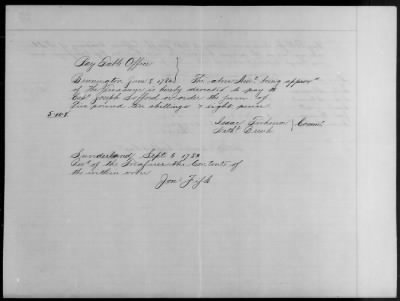 Pay Table Office
Bennington June 8 1780 } The above Acct. being approvd
of the Treasurer is hereby directed to pay to
Capt. Joseph Safford or order the sum of
five pound ten shillings & eight pence
5-10-8
Isaac Tichenor } Comtt.
Nathl Brush
Sunderland Sept. 6 1780
Recd of the Treasurer the Contents of
the within order
Jona Fisk